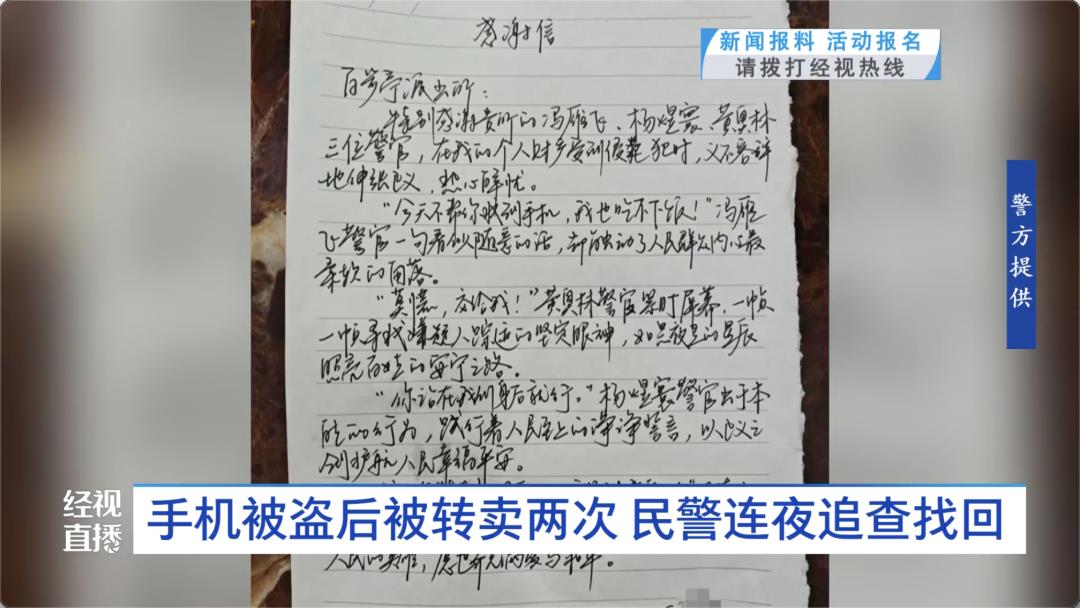 感谢信
新闻报料 活动报名
请拨打经视热线
百步亭派出所：
特别感谢贵所的冯雁飞、杨煜寰、黄奥林
三位警官，在我的个人财产受到侵犯时，义不容辞
地伸张正义，热心解忧。
“今天不帮你找到手机，我也吃不下饭！”冯雁
飞警官一句看似随意的话，却触动了人民群众内心最
柔软的角落。
“莫慌，交给我！”黄奥林警官 屏幕，一帧
一帧寻找嫌疑人踪迹的坚定眼神，如 的星辰
照亮 的安宁之路。
“你站在我们身后就行。”杨煜寰警官出于本
能的行为，践行着人民至上的铮铮誓言，以正义之
剑护航人民幸福平安。
人民的 ，愿世界 与和平。
警方提供
经视
直播
手机被盗后被转卖两次 民警连夜追查找回